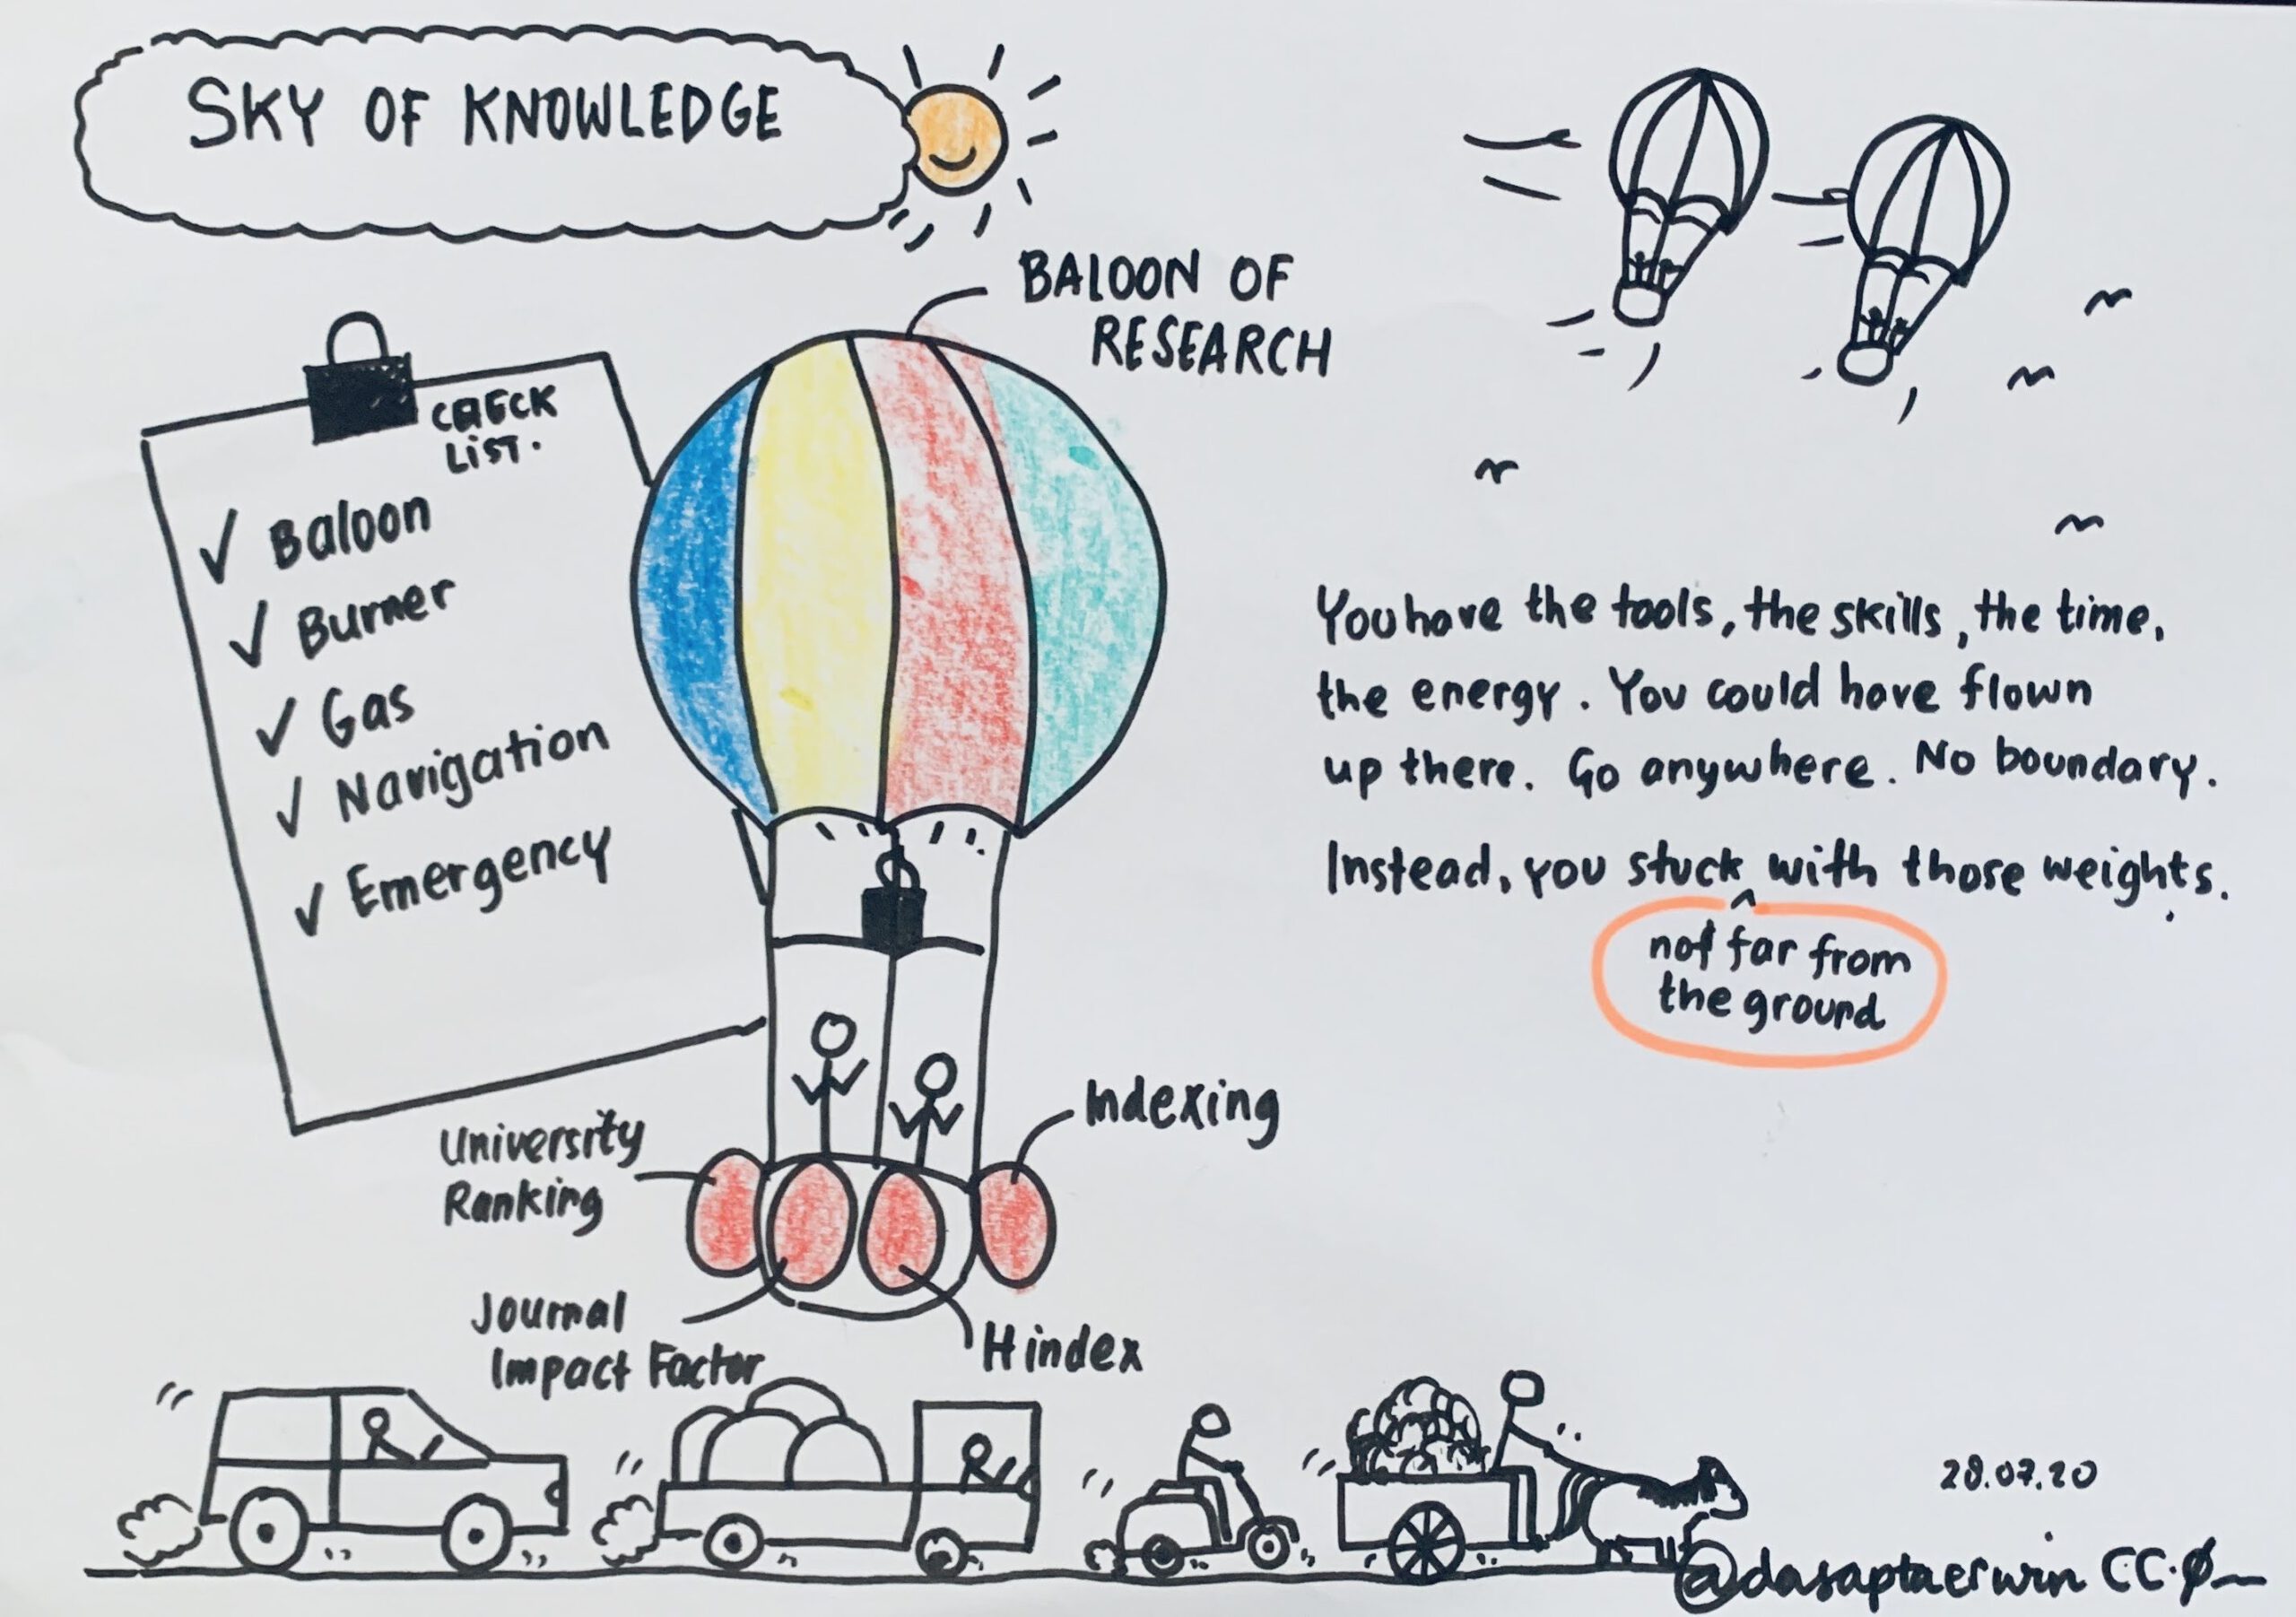 SKY OF KNOWLEDGE
BALOON OF
RESEARCH
CHECK
LIST.
✓ Baloon
✓ Burner
✓ Gas
✓ Navigation
✓ Emergency
You have the tools, the skills, the time,
the energy. You could have flown
up there. Go anywhere. No boundary.
Instead, you stuck ^ with those weights.
not far from
the ground
University
Ranking
Indexing
Journal
Impact Factor
H index
28.07.20
@dasaptaerwin CC.Ø